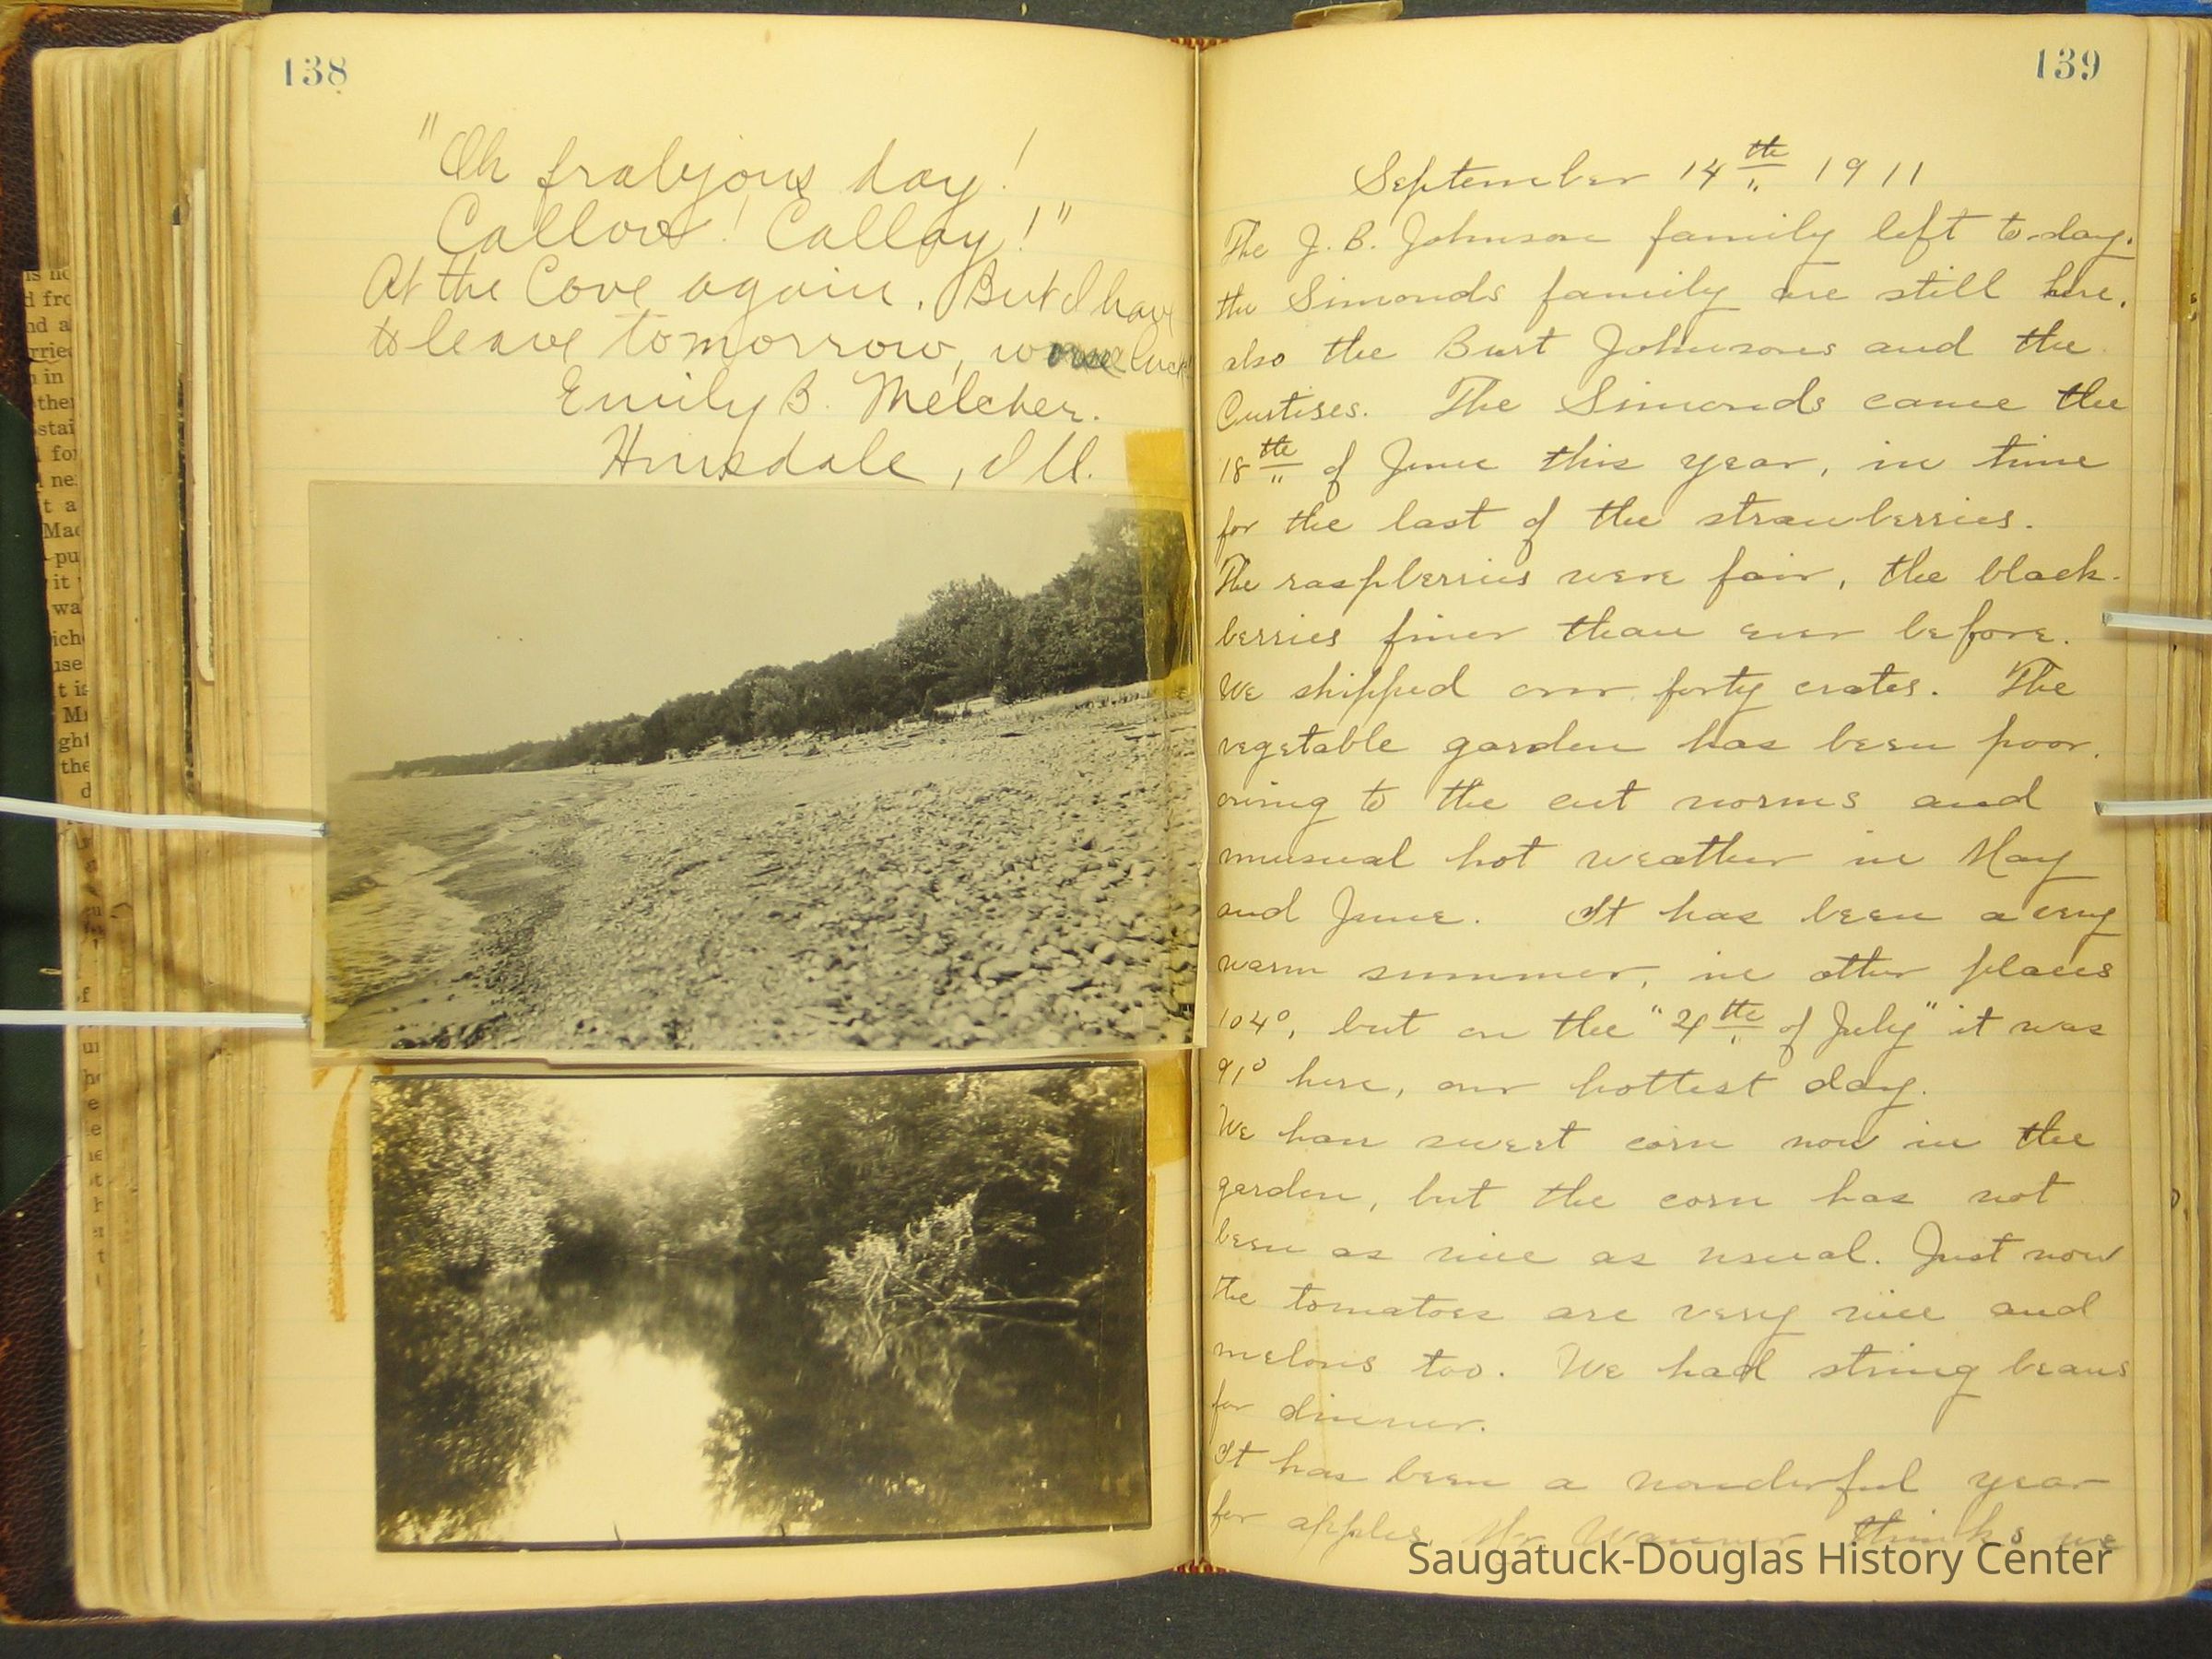 138
"Oh frabjous day!
Calloo! Callay!"
At the Cove again. But I have
to leave tomorrow, worse luck!
Emily B. Melcher.
Hinsdale, Ill.
139
September 14th 1911
The J. B. Johnson family left to-day.
the Simonds family are still here,
also the Burt Johnsons and the
Curtises. The Simonds came the
18th of June this year, in time
for the last of the strawberries.
The raspberries were fair, the black-
berries finer than ever before.
We shipped over forty crates. The
vegetable garden has been poor,
owing to the cut worms and
unusual hot weather in May
and June. It has been a very
warm summer, in other places
104°, but on the "4th of July" it was
91° here, our hottest day.
We have sweet corn now in the
garden, but the corn has not
been as nice as usual. Just now
the tomatoes are very nice and
melons too. We had string beans
for dinner.
It has been a wonderful year
for apples. Mr thinks we
Saugatuck-Douglas History Center